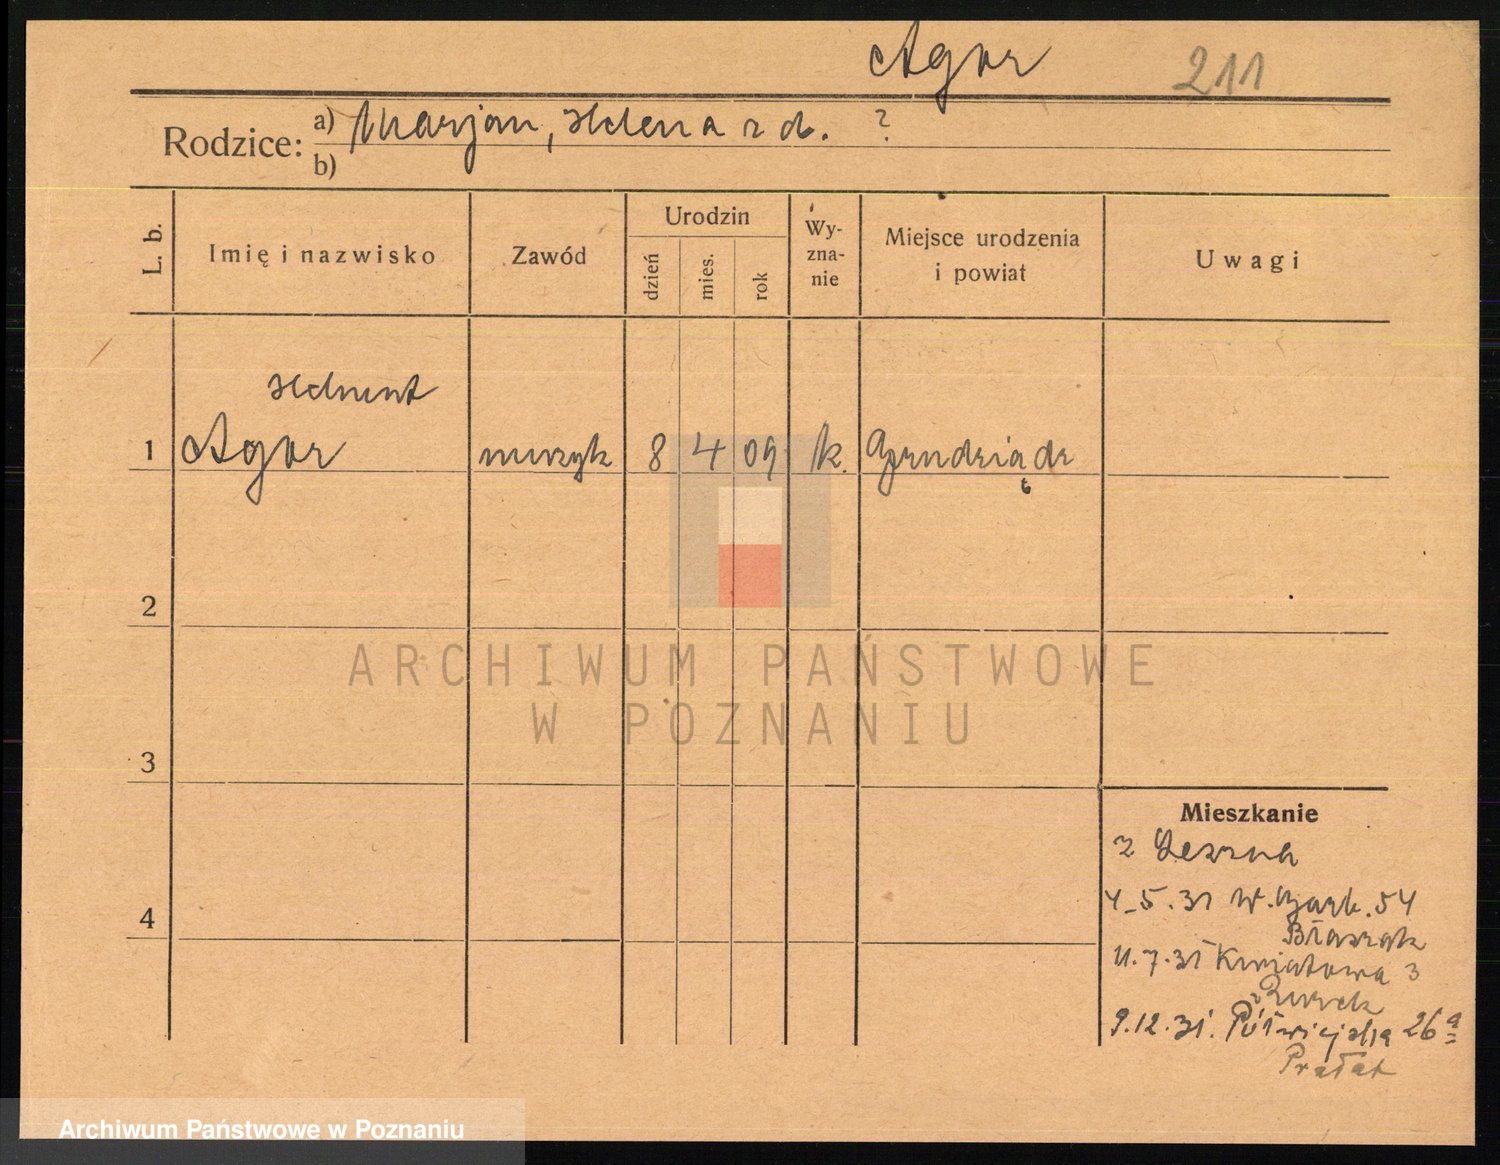 Agor 211
Rodzice: a) Marjan, Helena z d. ?
b)
L. b. Imię i nazwisko Zawód Urodzin dzień mies. rok Wy-zna-nie Miejsce urodzenia i powiat Uwagi
Helmut
1 Agor muzyk 8 4 09 k. Grudziądz
2
3
4
ARCHIWUM PAŃSTWOWE
W POZNANIU
Mieszkanie
z Leszna
4.5.31 W. Garb. 54
Błaszak
11.7.31 Kwiatowa 3
Żurek
9.12.31. Półwiejska 26a
Prałat
Archiwum Państwowe w Poznaniu